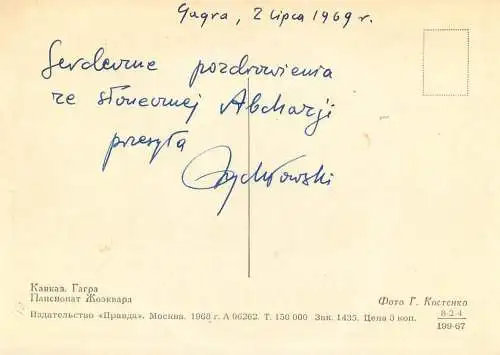 Gagra, 2 lipca 1969 r.
Serdeczne pozdrowienia
ze słonecznej Abchazji
przesyła
Кавказ. Гагра
Пансионат Жоэквара
Фото Г. Костенко
Издательство «Правда». Москва. 1968 г. А 06262. Т. 150 000 Зак. 1435. Цена 3 коп.
8-2-4
109-67